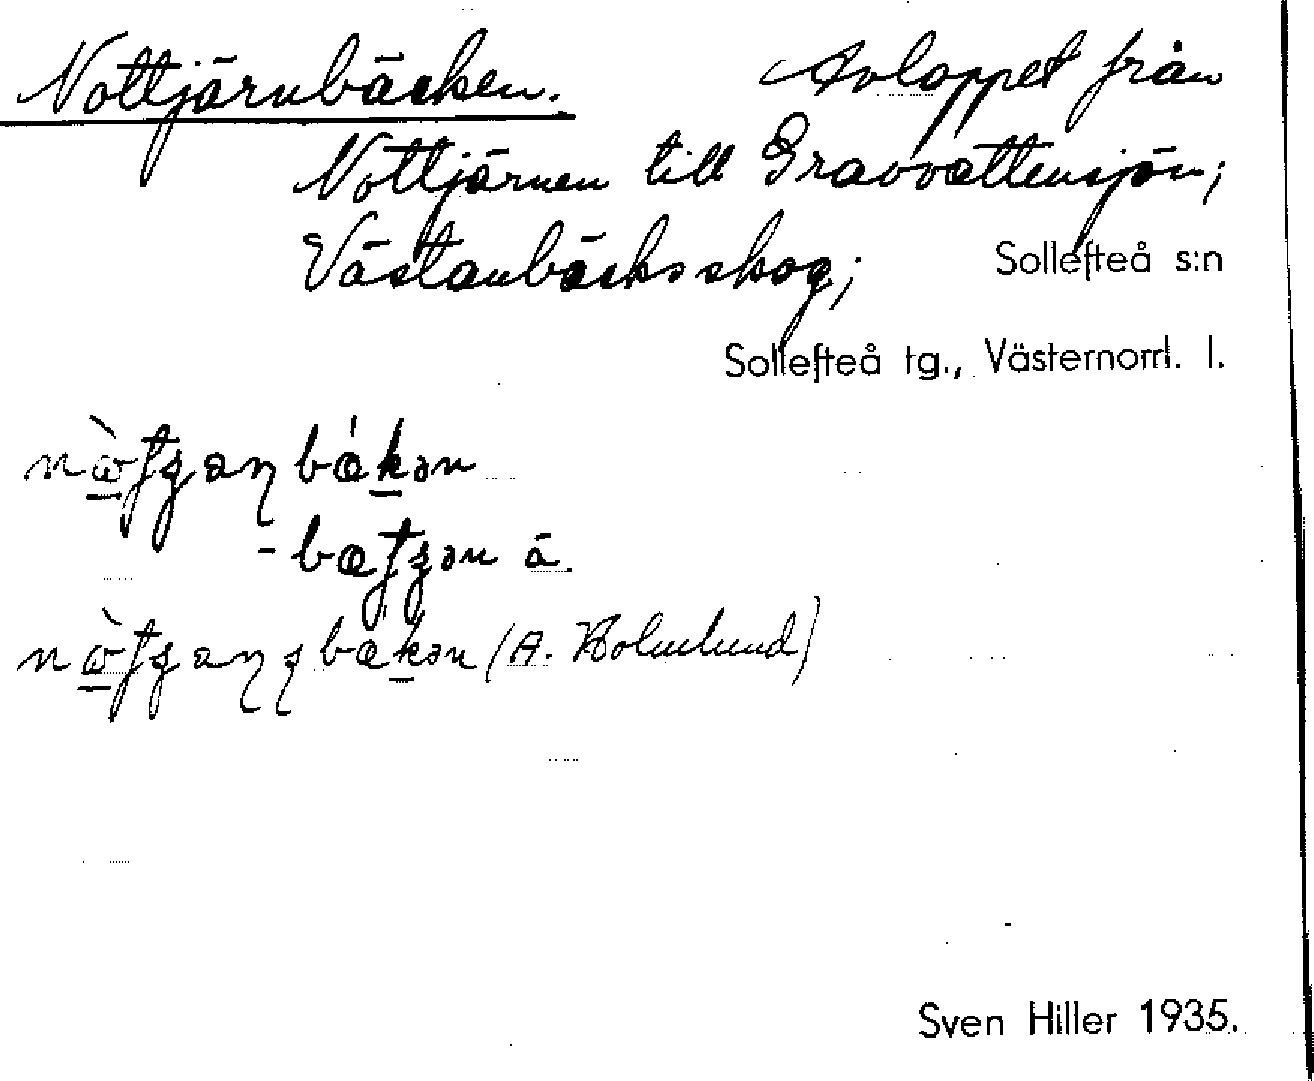 Nottjärnbäcken. Avloppet från
Nottjärnen till Gravvattensjön;
Västanbäcks skog; Sollefteå s:n
Sollefteå tg., Västernorrl. l.
(A. Holmlund)
Sven Hiller 1935.